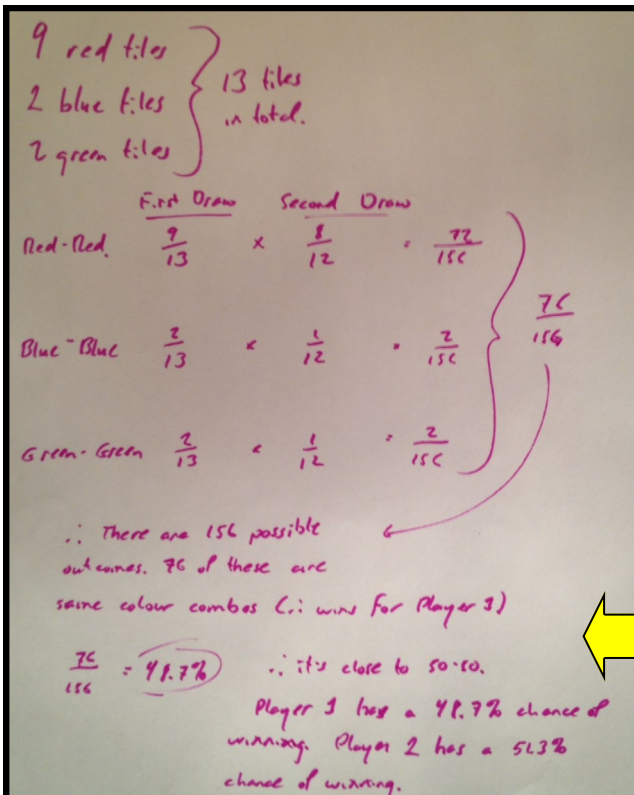 9 red tiles
2 blue tiles
2 green tiles
13 tiles
in total.
First Draw Second Draw
Red-Red 9/13 × 8/12 = 72/156
Blue-Blue 2/13 × 1/12 = 2/156
Green-Green 2/13 × 1/12 = 2/156
76/156
∴ There are 156 possible
outcomes. 76 of these are
same colour combos (∴ wins for Player 1)
76/156 = 48.7% ∴ it's close to 50-50.
Player 1 has a 48.7% chance of
winning. Player 2 has a 51.3%
chance of winning.